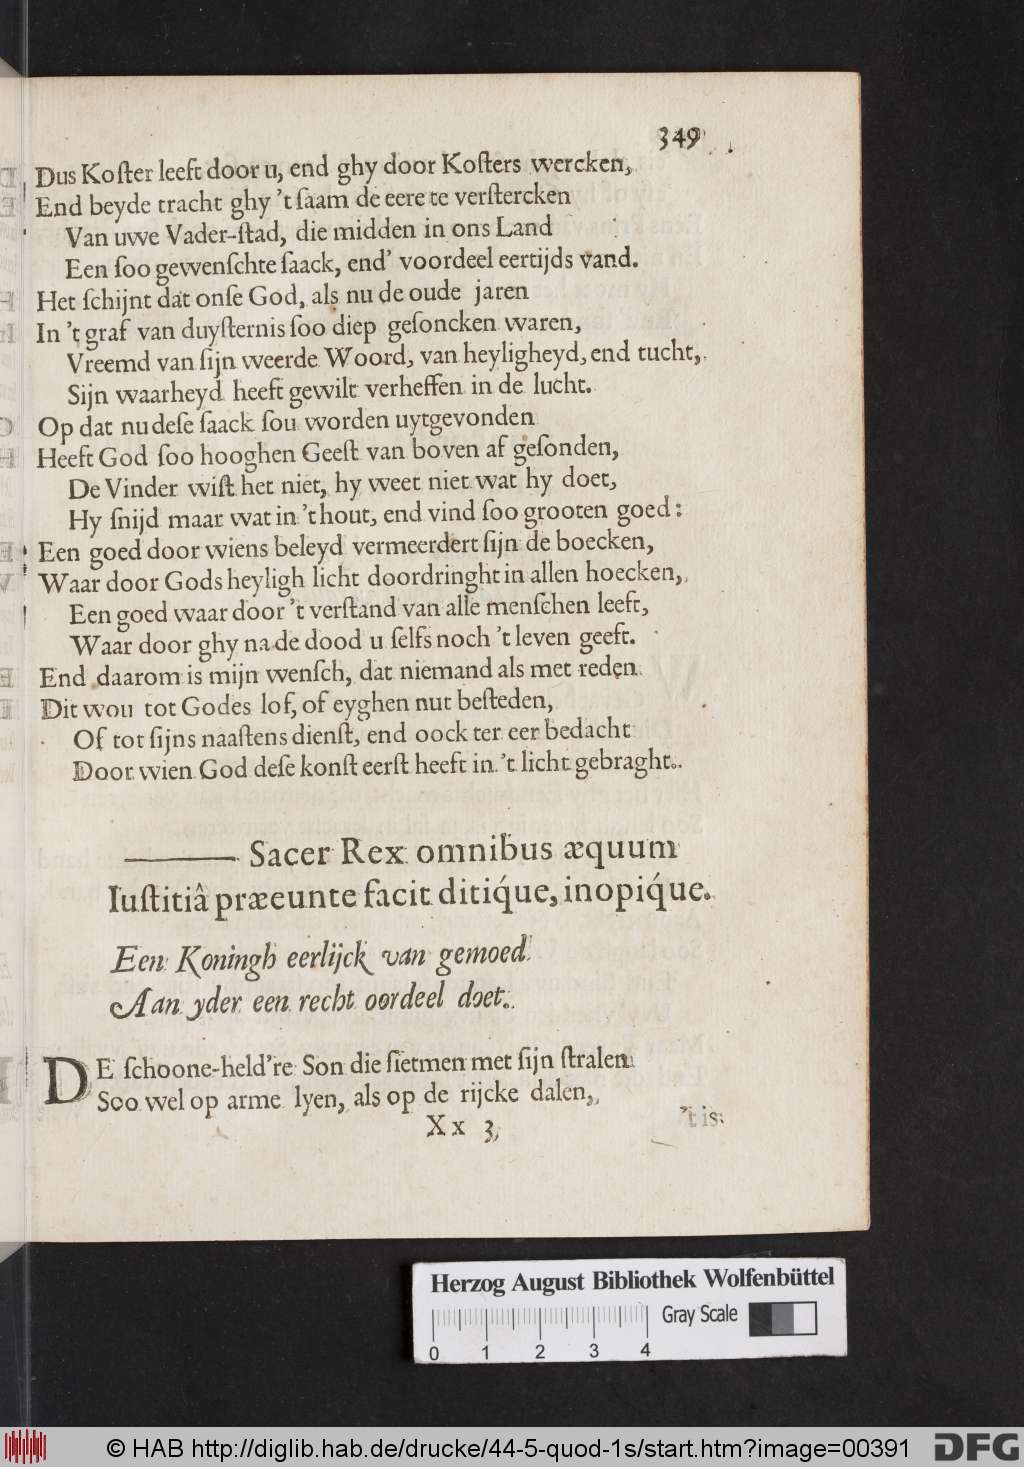 349
Dus Koſter leeft door u, end ghy door Koſters wercken,
End beyde tracht ghy 't ſaam de eere te verſtercken
Van uwe Vader-ſtad, die midden in ons Land
Een ſoo gewenſchte ſaack, end' voordeel eertijds vand.
Het ſchijnt dat onſe God, als nu de oude jaren
In 't graf van duyſternis ſoo diep geſoncken waren,
Vreemd van ſijn weerde Woord, van heyligheyd, end tucht,
Sijn waarheyd heeft gewilt verheffen in de lucht.
Op dat nu deſe ſaack ſou worden uytgevonden
Heeft God ſoo hooghen Geeſt van boven af geſonden,
De Vinder wiſt het niet, hy weet niet wat hy doet,
Hy ſnijd maar wat in 't hout, end vind ſoo grooten goed:
Een goed door wiens beleyd vermeerdert ſijn de boecken,
Waar door Gods heyligh licht doordringht in allen hoecken,
Een goed waar door 't verſtand van alle menſchen leeft,
Waar door ghy na de dood u ſelfs noch 't leven geeft.
End daarom is mijn wenſch, dat niemand als met reden
Dit wou tot Godes lof, of eyghen nut beſteden,
Of tot ſijns naaſtens dienſt, end oock ter eer bedacht
Door wien God deſe konſt eerſt heeft in 't licht gebraght.
——— Sacer Rex omnibus æquum
Iuſtitiâ præeunte facit ditiq́ue, inopiq́ue.
Een Koningh eerlijck van gemoed
Aan yder een recht oordeel doet.
DE ſchoone-held're Son die ſietmen met ſijn ſtralen
Soo wel op arme lyen, als op de rijcke dalen,
Xx 3
't is
Herzog August Bibliothek Wolfenbüttel
Gray Scale
0 1 2 3 4
© HAB http://diglib.hab.de/drucke/44-5-quod-1s/start.htm?image=00391
DFG